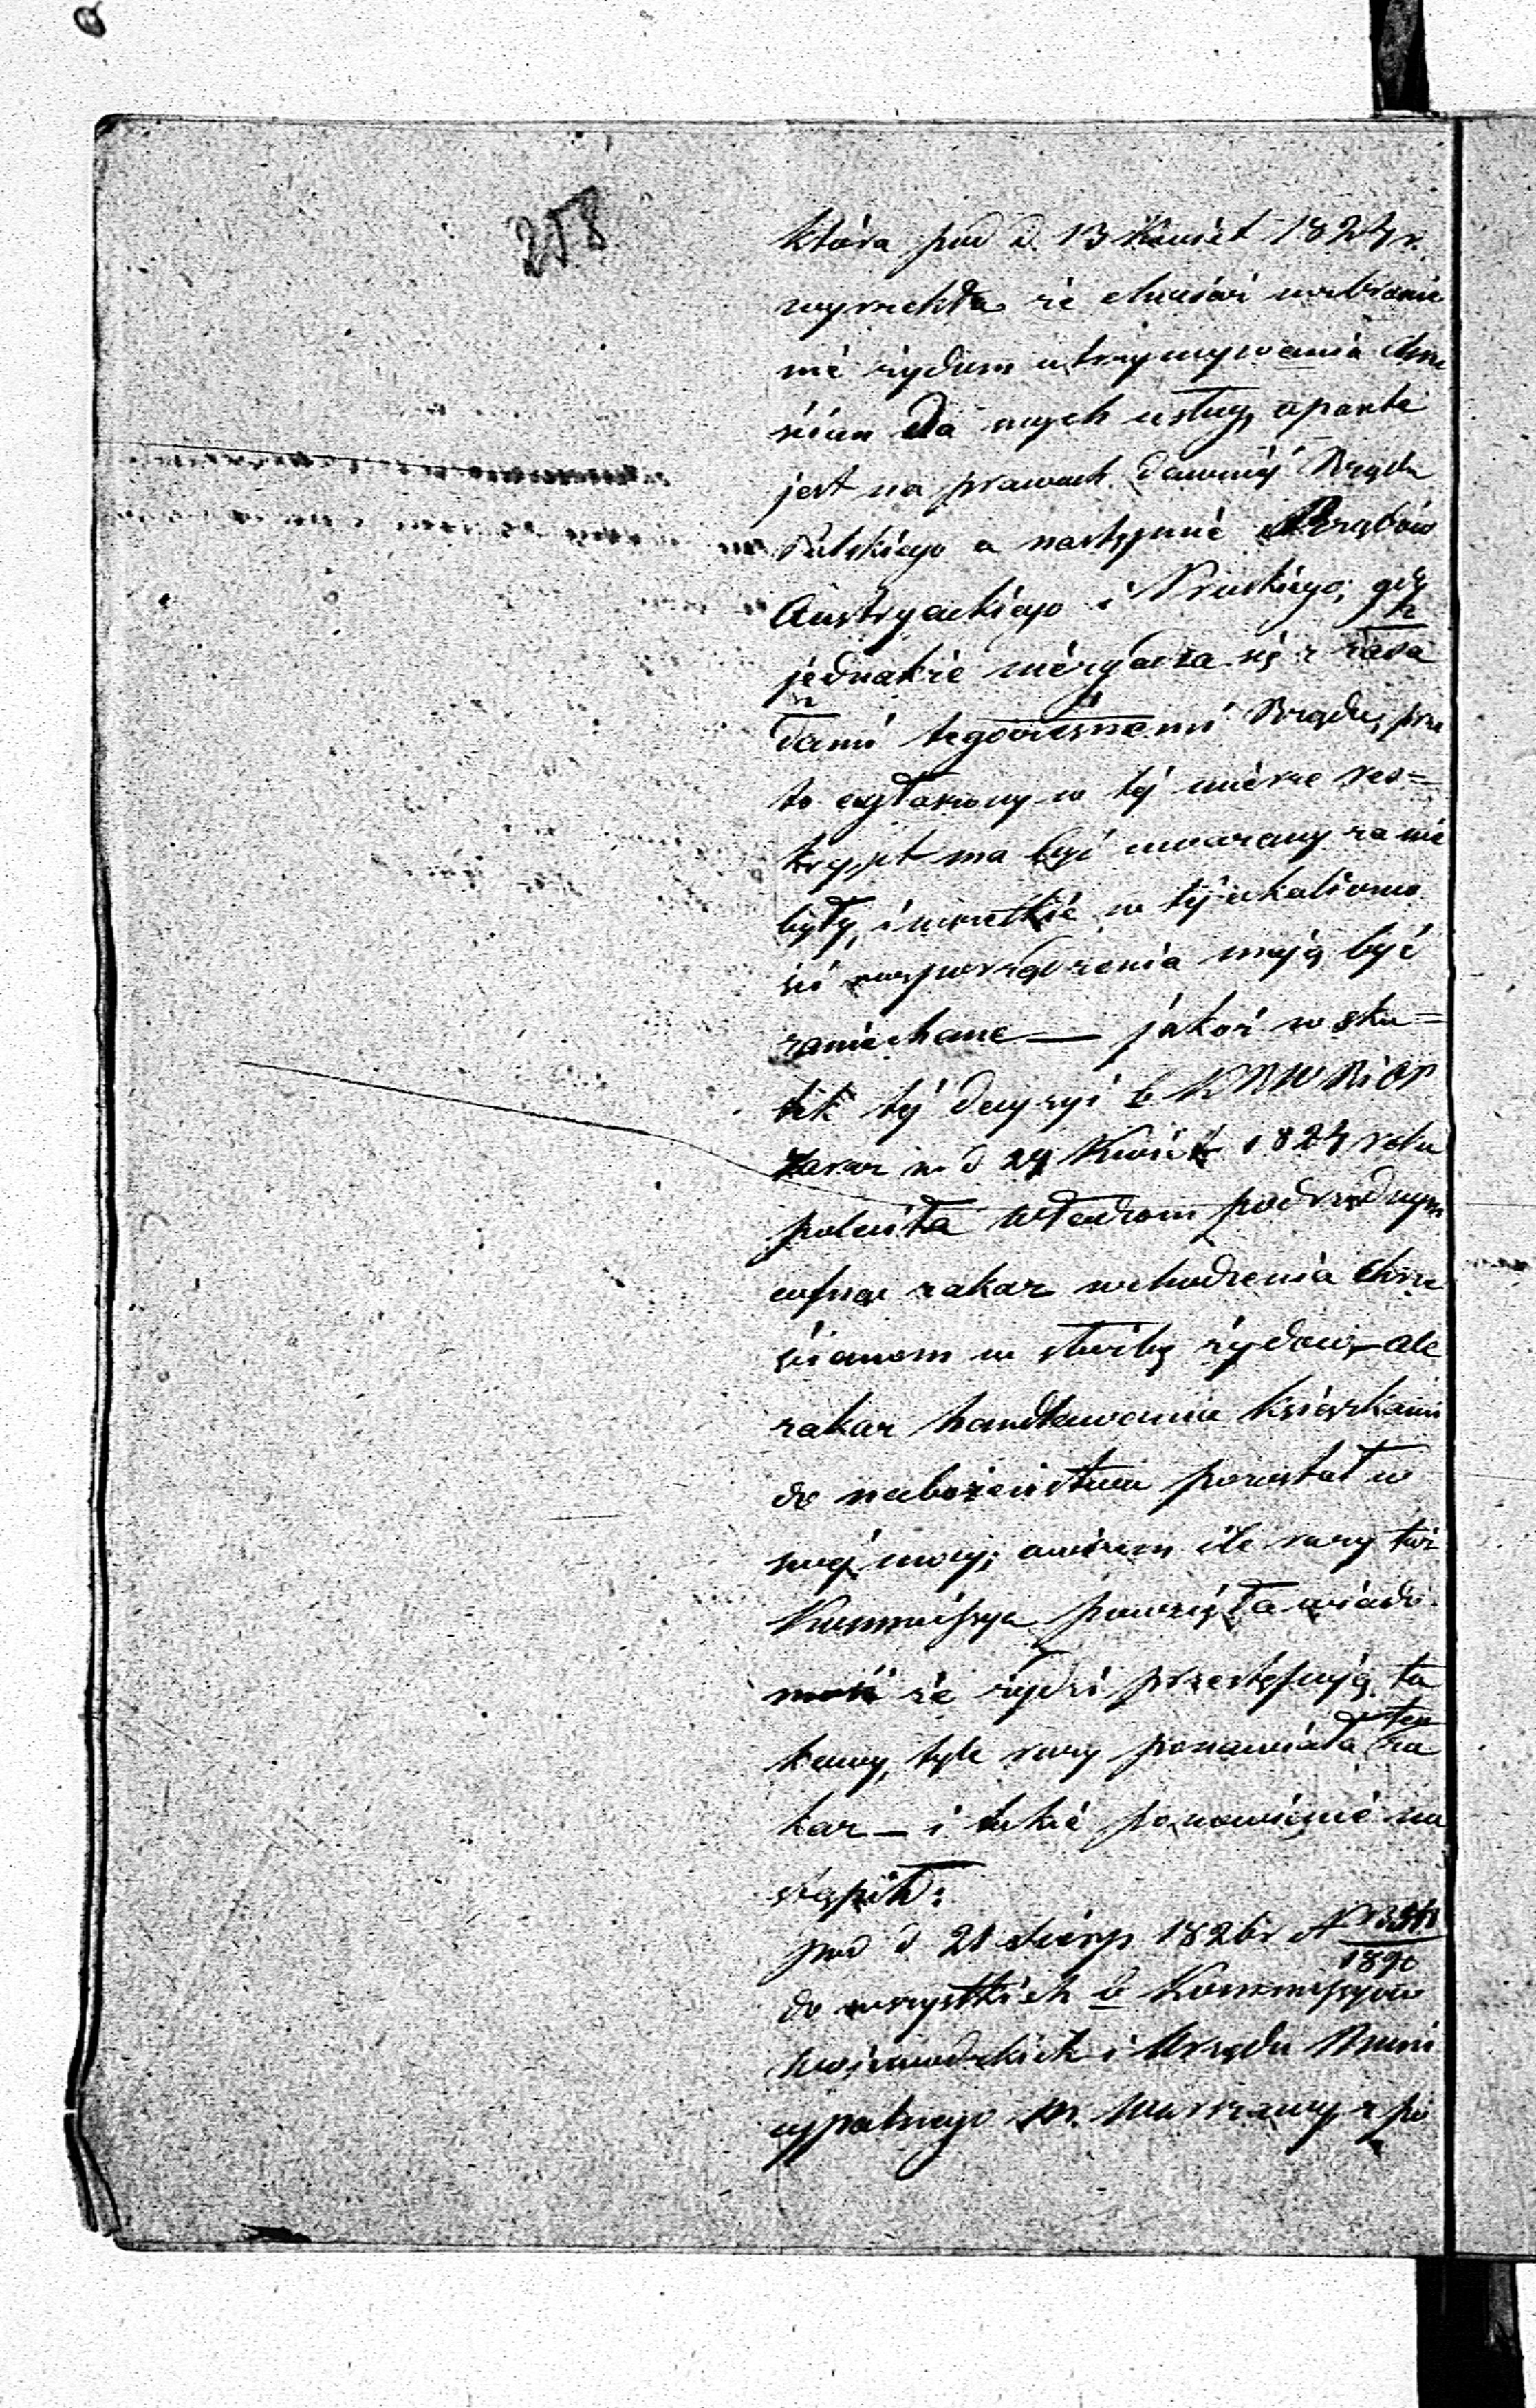 258
która pod d. 13 Kwiet 1824 r.
wyrzekła że chociaż wzbronie
nié żydom utrzymywania Chrze
ścian dla swych usług, oparte
jest na prawach dawnéj Rządu
Polskiego a następnié Rządów
Austryackiego i Pruskiego; gdy
jednakże niezgadza się z zasa
dami tegoczesnemi Rządu, prze
to wydany w téj mierze res=
krypt ma być uważany za nie
były, i wszelkié w téj okoliczno
ści rozporządzenia mają być
zaniechane — jakoż w sku=
tek téj decyzyi b KRWRiOP
zaraz w d 24 Kwiet 1824 roku
poleciła Władzom podrzędnym
cofnąć zakaz wchodzenia Chrze
ścianom w służbę żydów, — ale
zakaz handlowania książkami
do nabożeństwa pozostał w
swéj mocy; owszem ile razy też
Kommissya powzięła wiado
mość że żydzi przestępują ta
kowy, tyle razy ponawiała ten za
kaz — i takié ponowienié na
stąpiło:
pod d 21 Sierp 1826 r N
1890
do wszystkich b Kommissyów
Wojewodzkich i Urzędu Muni
cypalnego M. Warszawy, z po